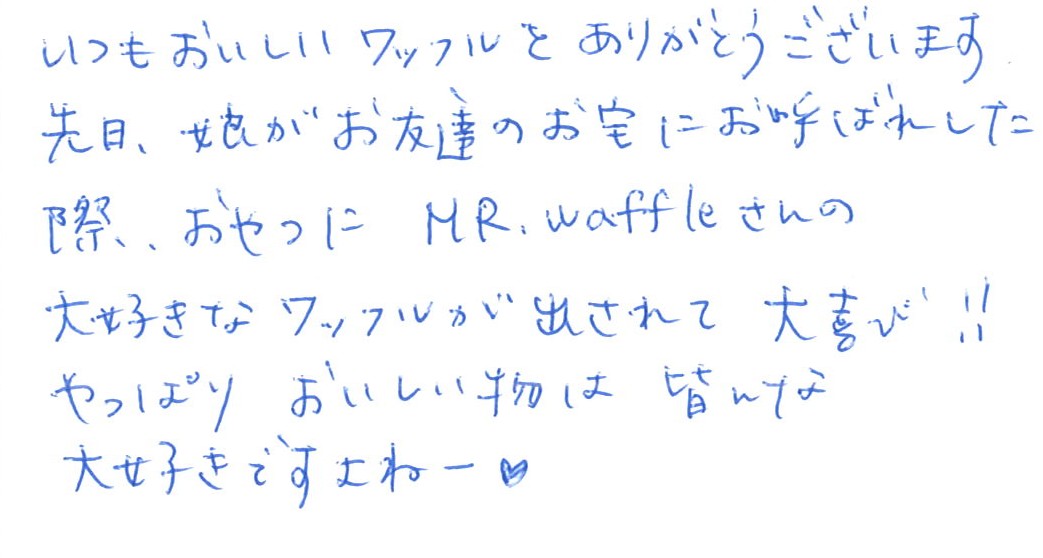 いつもおいしいワッフルをありがとうございます
先日、娘がお友達のお宅にお呼ばれした
際、おやつに MR.waffleさんの
大好きなワッフルが出されて 大喜び!!
やっぱり おいしい物は 皆んな
大好きですよねー♥